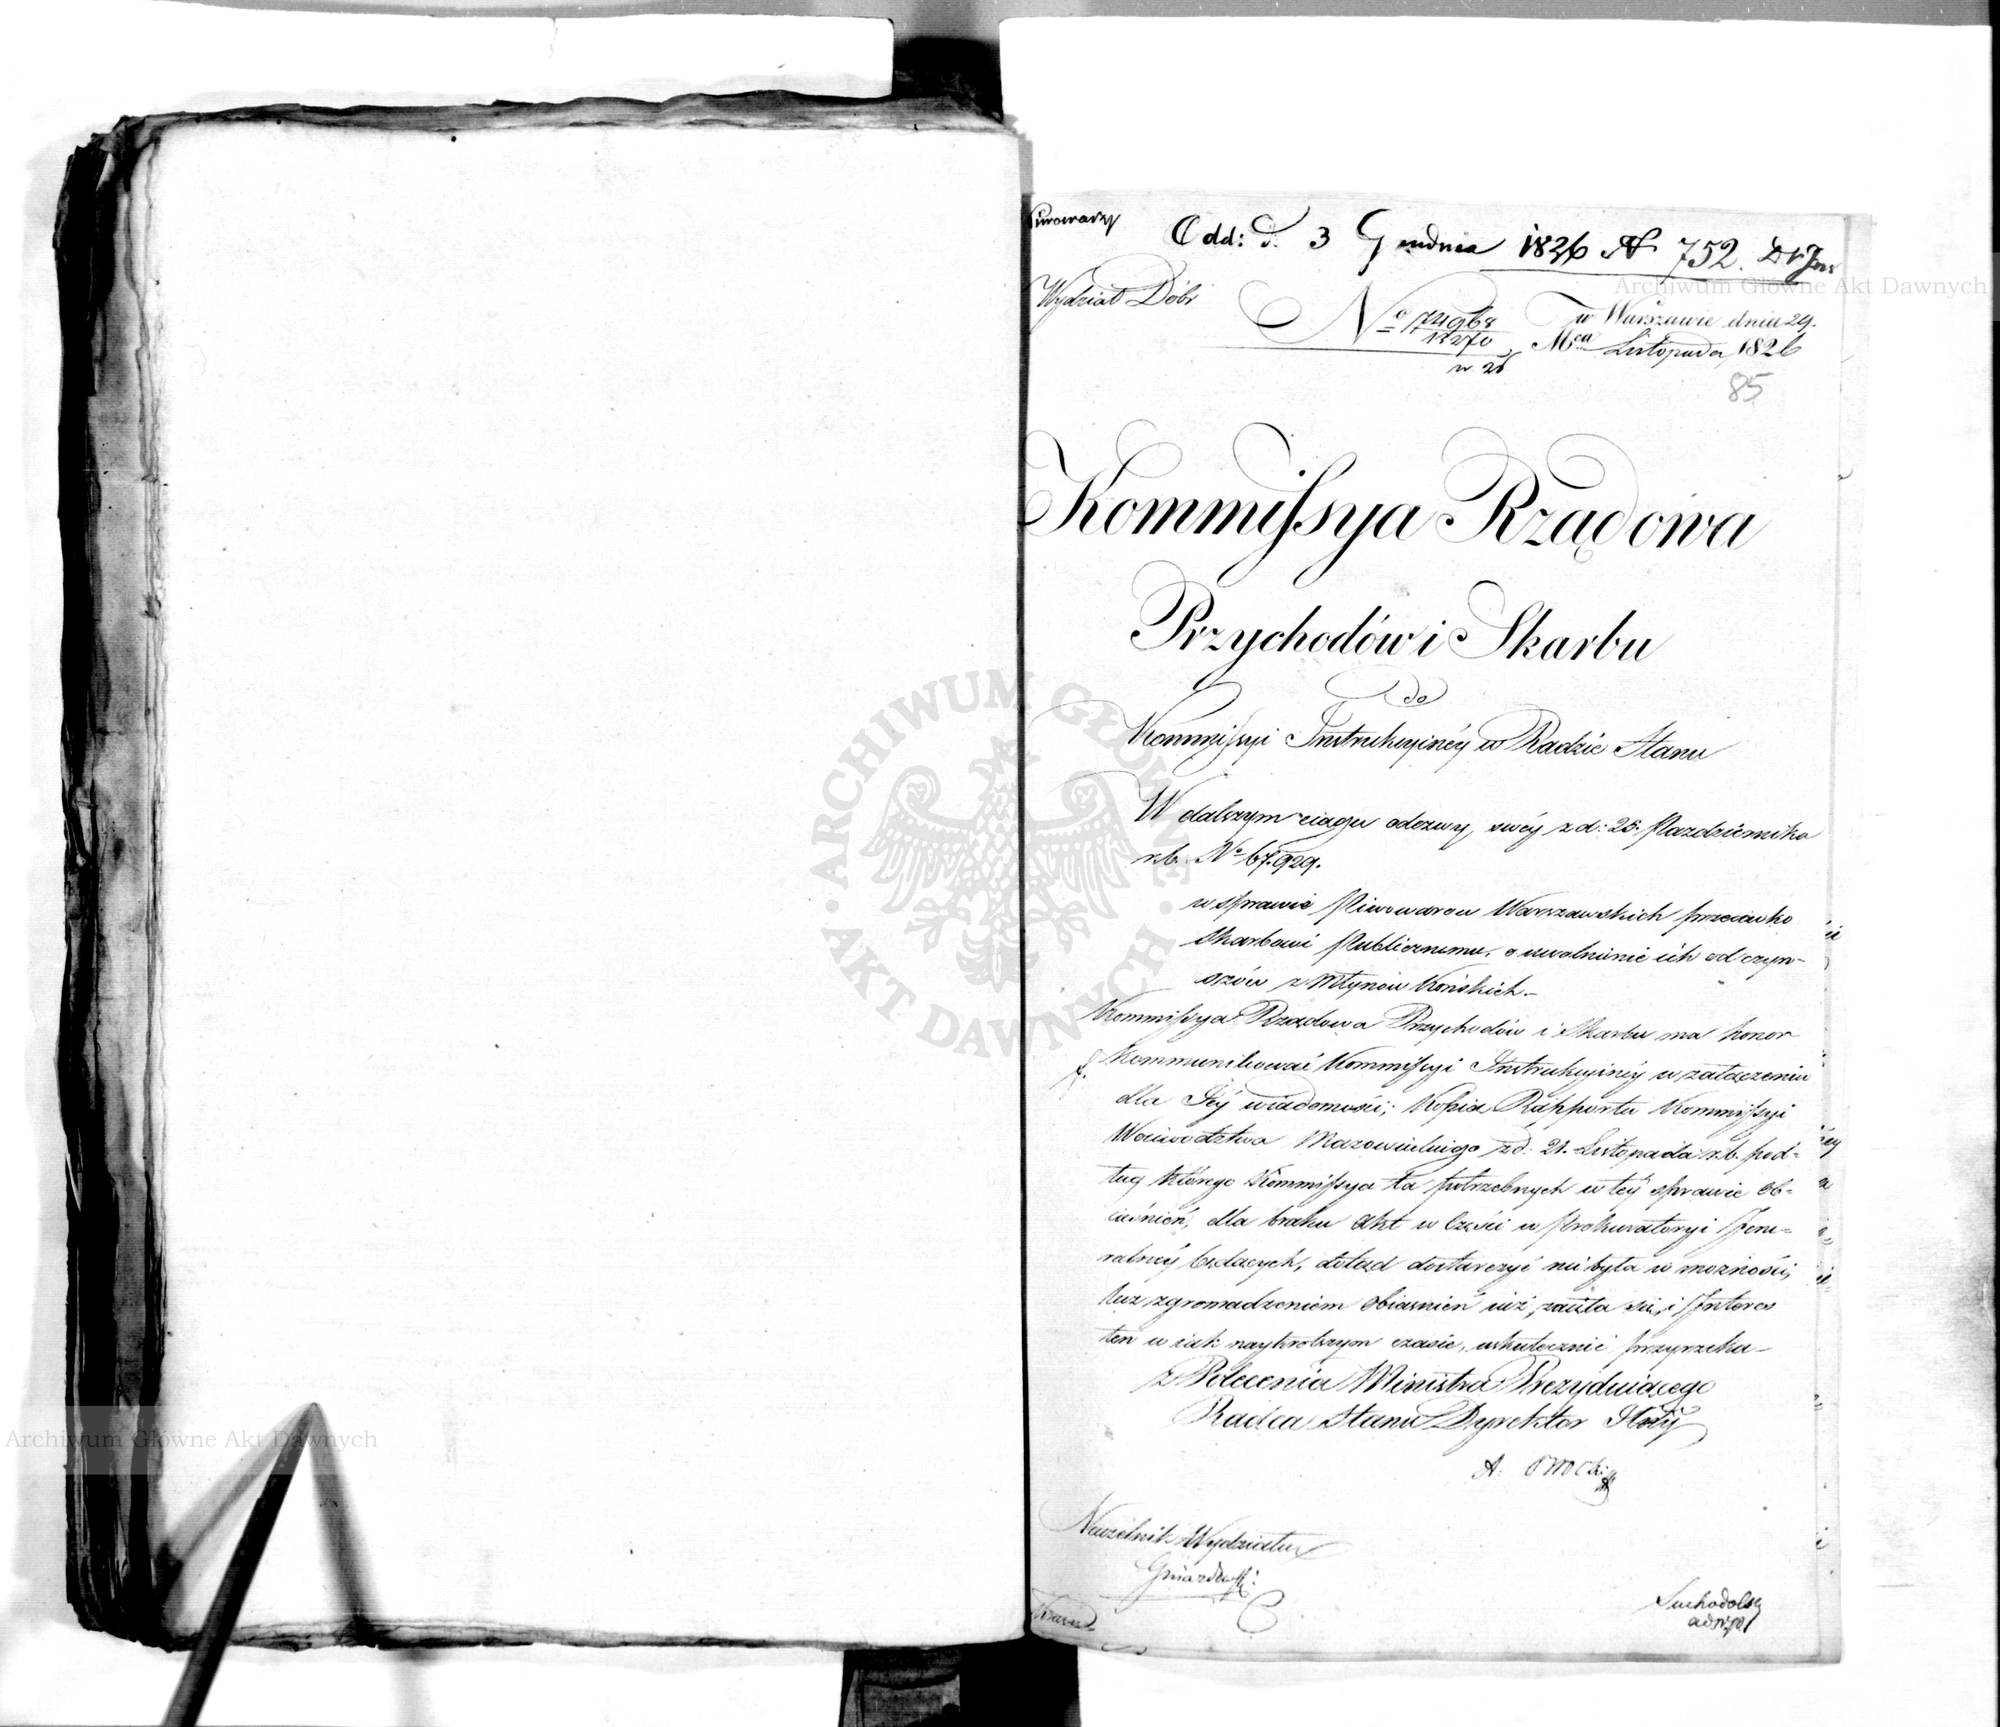 Odd: d. 3 Grudnia 1826 N 752.
Wydział Dóbr
w Warszawie dnia 29.
No 74968
13270
Mca Listopada 1826
w 26
85
Kommissya Rządowa
Przychodów i Skarbu
do
Kommissyi Instrukcyinéy w Radzie Stanu
W dalszym ciągu odezwy swéy z d: 25. Pazdziernika
r.b. No 67.929.
w sprawie Piwowarów Warszawskich przeciwko
Skarbowi Publicznemu, o uwolnienie ich od czyn-
szów z Młynów Końskich.-
Kommissya Rządowa Przychodów i Skarbu ma honor
kommunikować Kommissyi Instrukcyinéy w załączeniu
dla Jéy wiadomości; Kopią Rapportu Kommissyi
Woiewództwa Mazowieckiego z d: 21. Listopada r.b. pod-
ług którego Kommissya ta potrzebnych w téy sprawie ob-
iaśnień, dla braku Akt w Części w Prokuratoryi Jene-
ralnéy będących, dotąd dostarczyć nie była w możności,
lecz zgromadzeniem obiaśnień iuż zaięła się, i Interes
ten w iak naykrótszym czasie, uskutecznić przyrzekła-
z Polecenia Ministra Prezyduiącego
Radca Stanu Dyrektor Jlny
Naczelnik Wydziału
ARCHIWUM GŁÓWNE AKT DAWNYCH
Archiwum Główne Akt Dawnych
Archiwum Główne Akt Dawnych